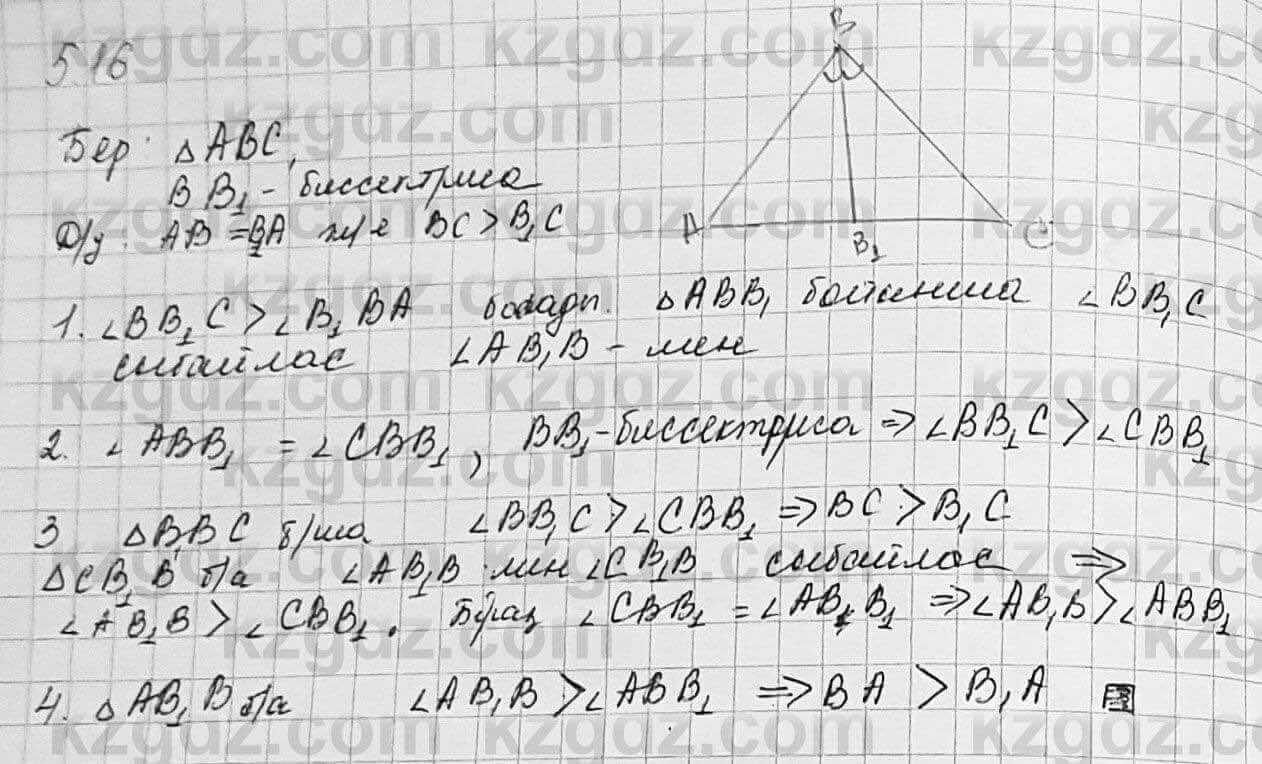 5.16
Бер: △ABC,
BB₁ - биссектриса
D/y: AB = B₂A ж/е BC > B₁C
B
A
B₁
C
1. ∠BB₁C > ∠B₁BA болады. △ABB₁ бойынша ∠BB₁C
сыбайлас ∠AB₁B - мен
2. ∠ABB₁ = ∠CBB₁, BB₁-биссектриса => ∠BB₁C > ∠CBB₁
3 △B₁BC б/ша ∠BB₁C > ∠CBB₁ => BC > B₁C
△CB₁B б/а ∠AB₁B мен ∠CB₁B сыбайлас =>
∠AB₁B > ∠CBB₁. Бірақ ∠CBB₁ = ∠AB₁B₁ => ∠AB₁B > ∠ABB₁
4. △AB₁B б/а ∠AB₁B > ∠ABB₁ => BA > B₁A
kzgdz.com